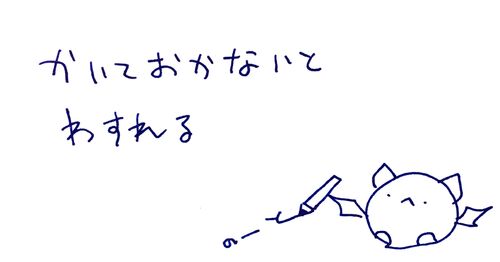 かいておかないと
わすれる